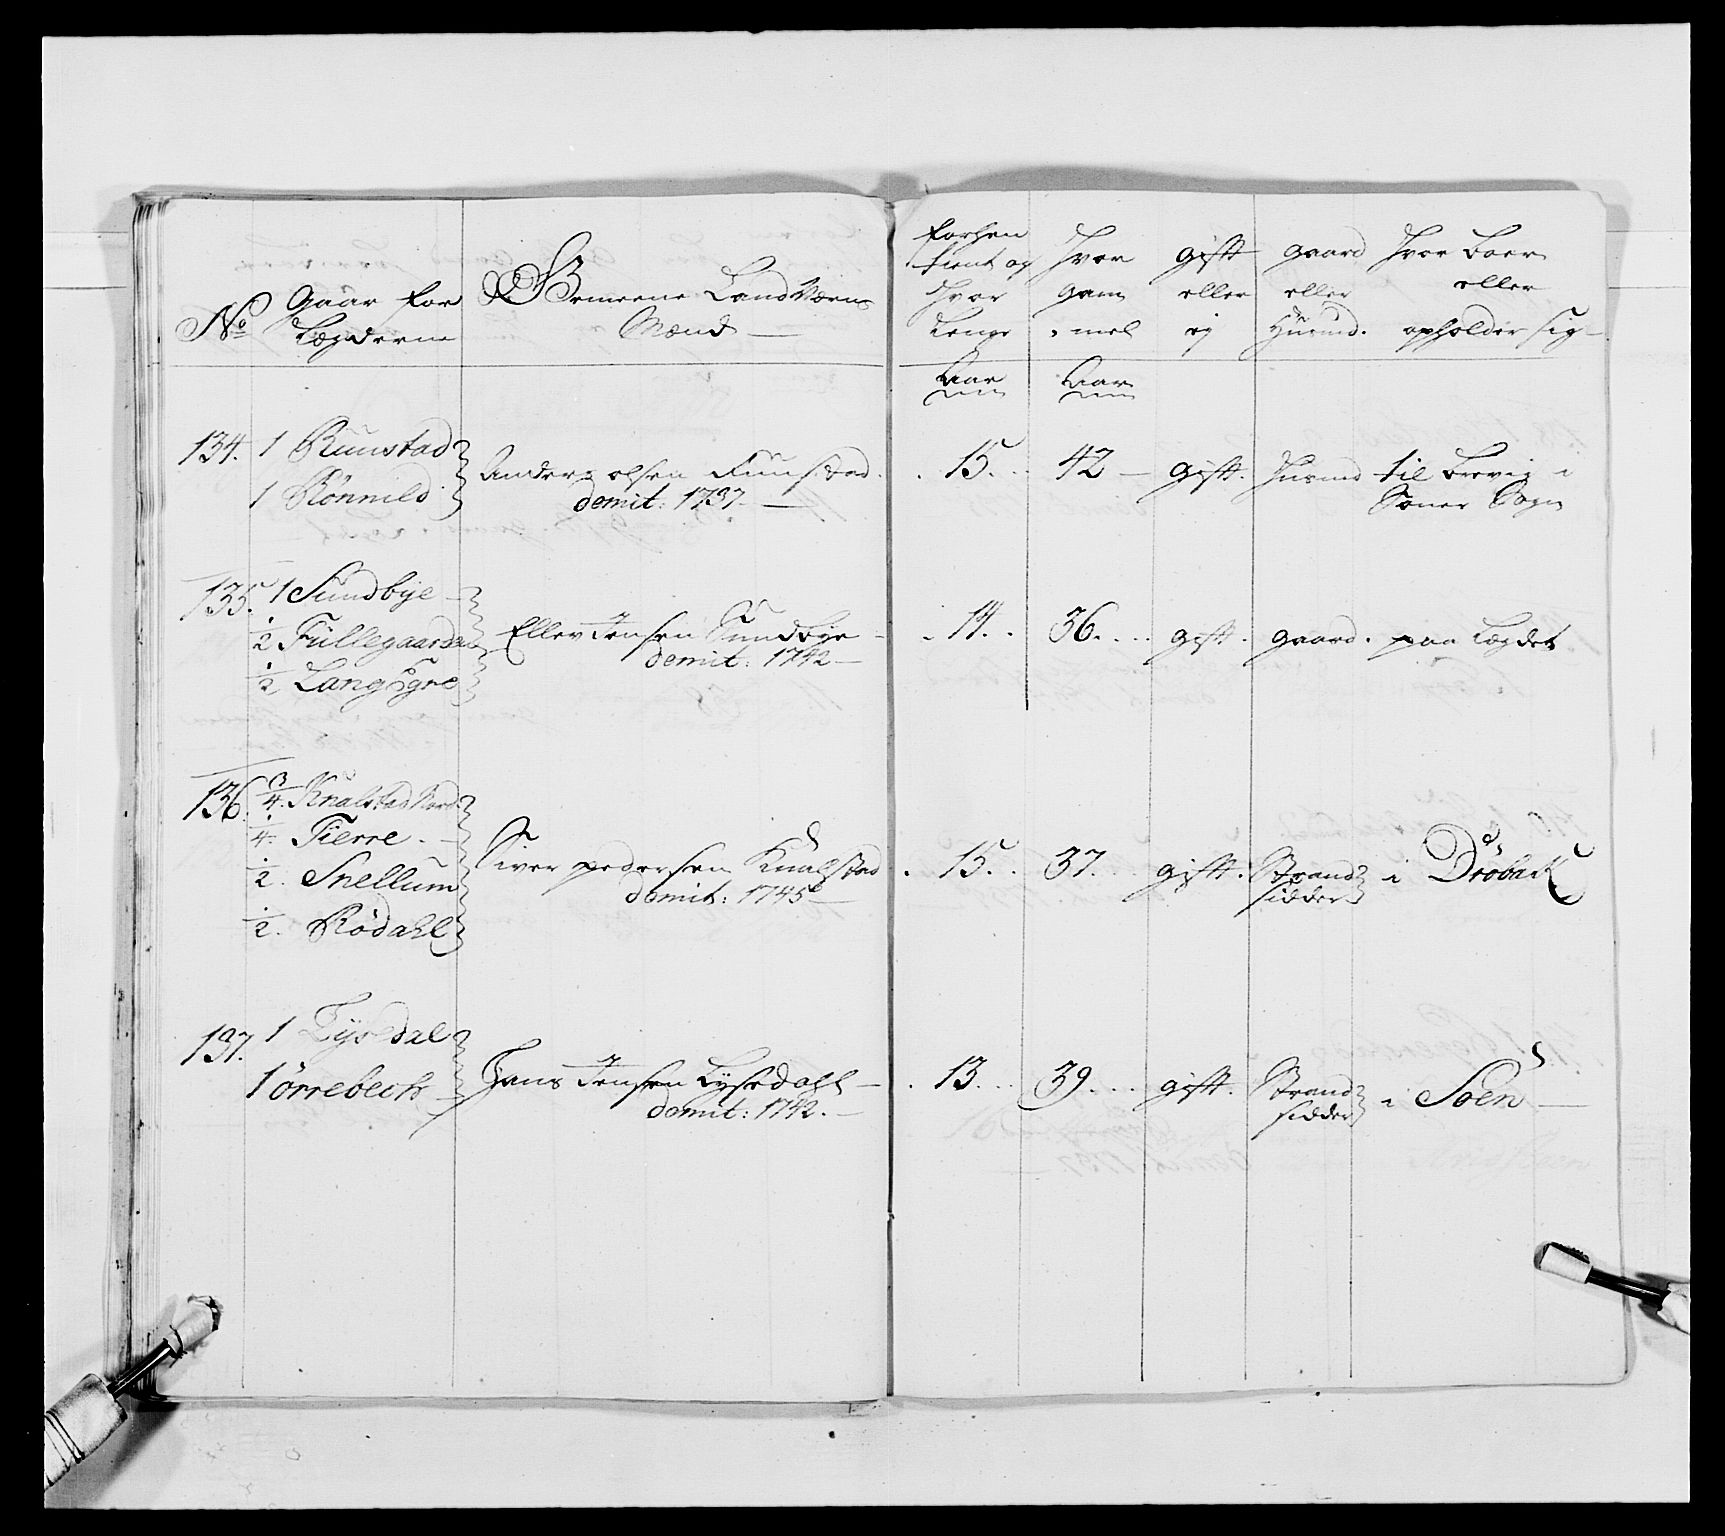 No
Gaar for
Lægderne
Gemeene Land Værns
Mænd
forhen
tient og
hvor
Lenge
Aar
hvor
gam
mel
Aar
gift
eller
ej
gaard
eller
Husmd.
hvor boer
eller
opholder sig
134. 1 Ruustad
1 Rönnild
Anders olsen Ruustad
demit: 1737
15. 42 gift. Husmd til Brevig i
Soner Sogn
135. 1 Sundbye
1/2 Fullegaarden
1/2 Langögre
Ellev Jensen Sundbye
demit: 1742
14. 36. gift. gaard. paa Legdet
136. 3/4. Knalstad Nord
1/4. Tierre.
1/2. Snellum
1/2. Rödahl
Siver pedersen Knalstad
demit: 1745
15. 37. gift. Strand
sidder i Dröbak
137. 1 Lysedal
1 örrebech
Hans Jensen Lysedahl
demit: 1742.
13. 39. gift. Strand
sidder i Soen